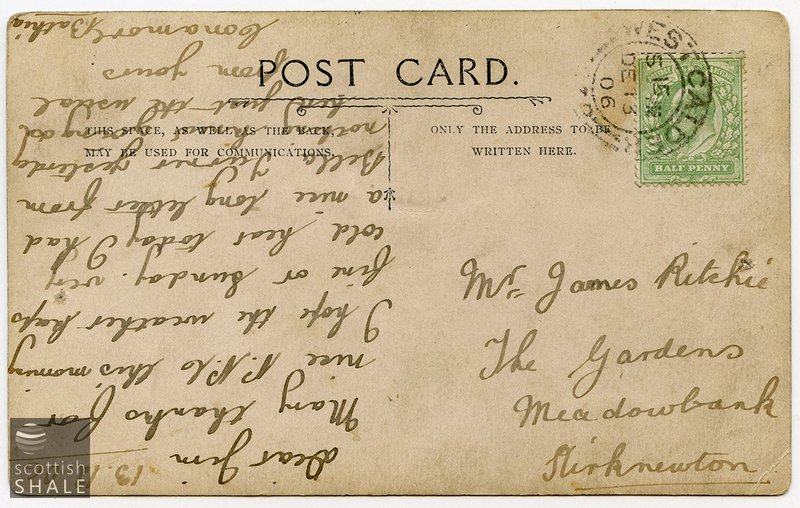 POST CARD.
THIS SPACE, AS WELL AS THE BACK,
MAY BE USED FOR COMMUNICATIONS.
ONLY THE ADDRESS TO BE
WRITTEN HERE.
WEST CALDER
5 15
DE 13
06
HALF PENNY
Mr James Ritchie
The Gardens
Meadowbank
Kirknewton
13.
Dear Jim
Many thanks for
nice P.P.C this morning
I hope the weather keeps
fine or Sunday. very
cold hear today I had
a nice long letter from
Bella Turner yesterday
nothing
just the usual
from yours
Bathia
scottish
SHALE